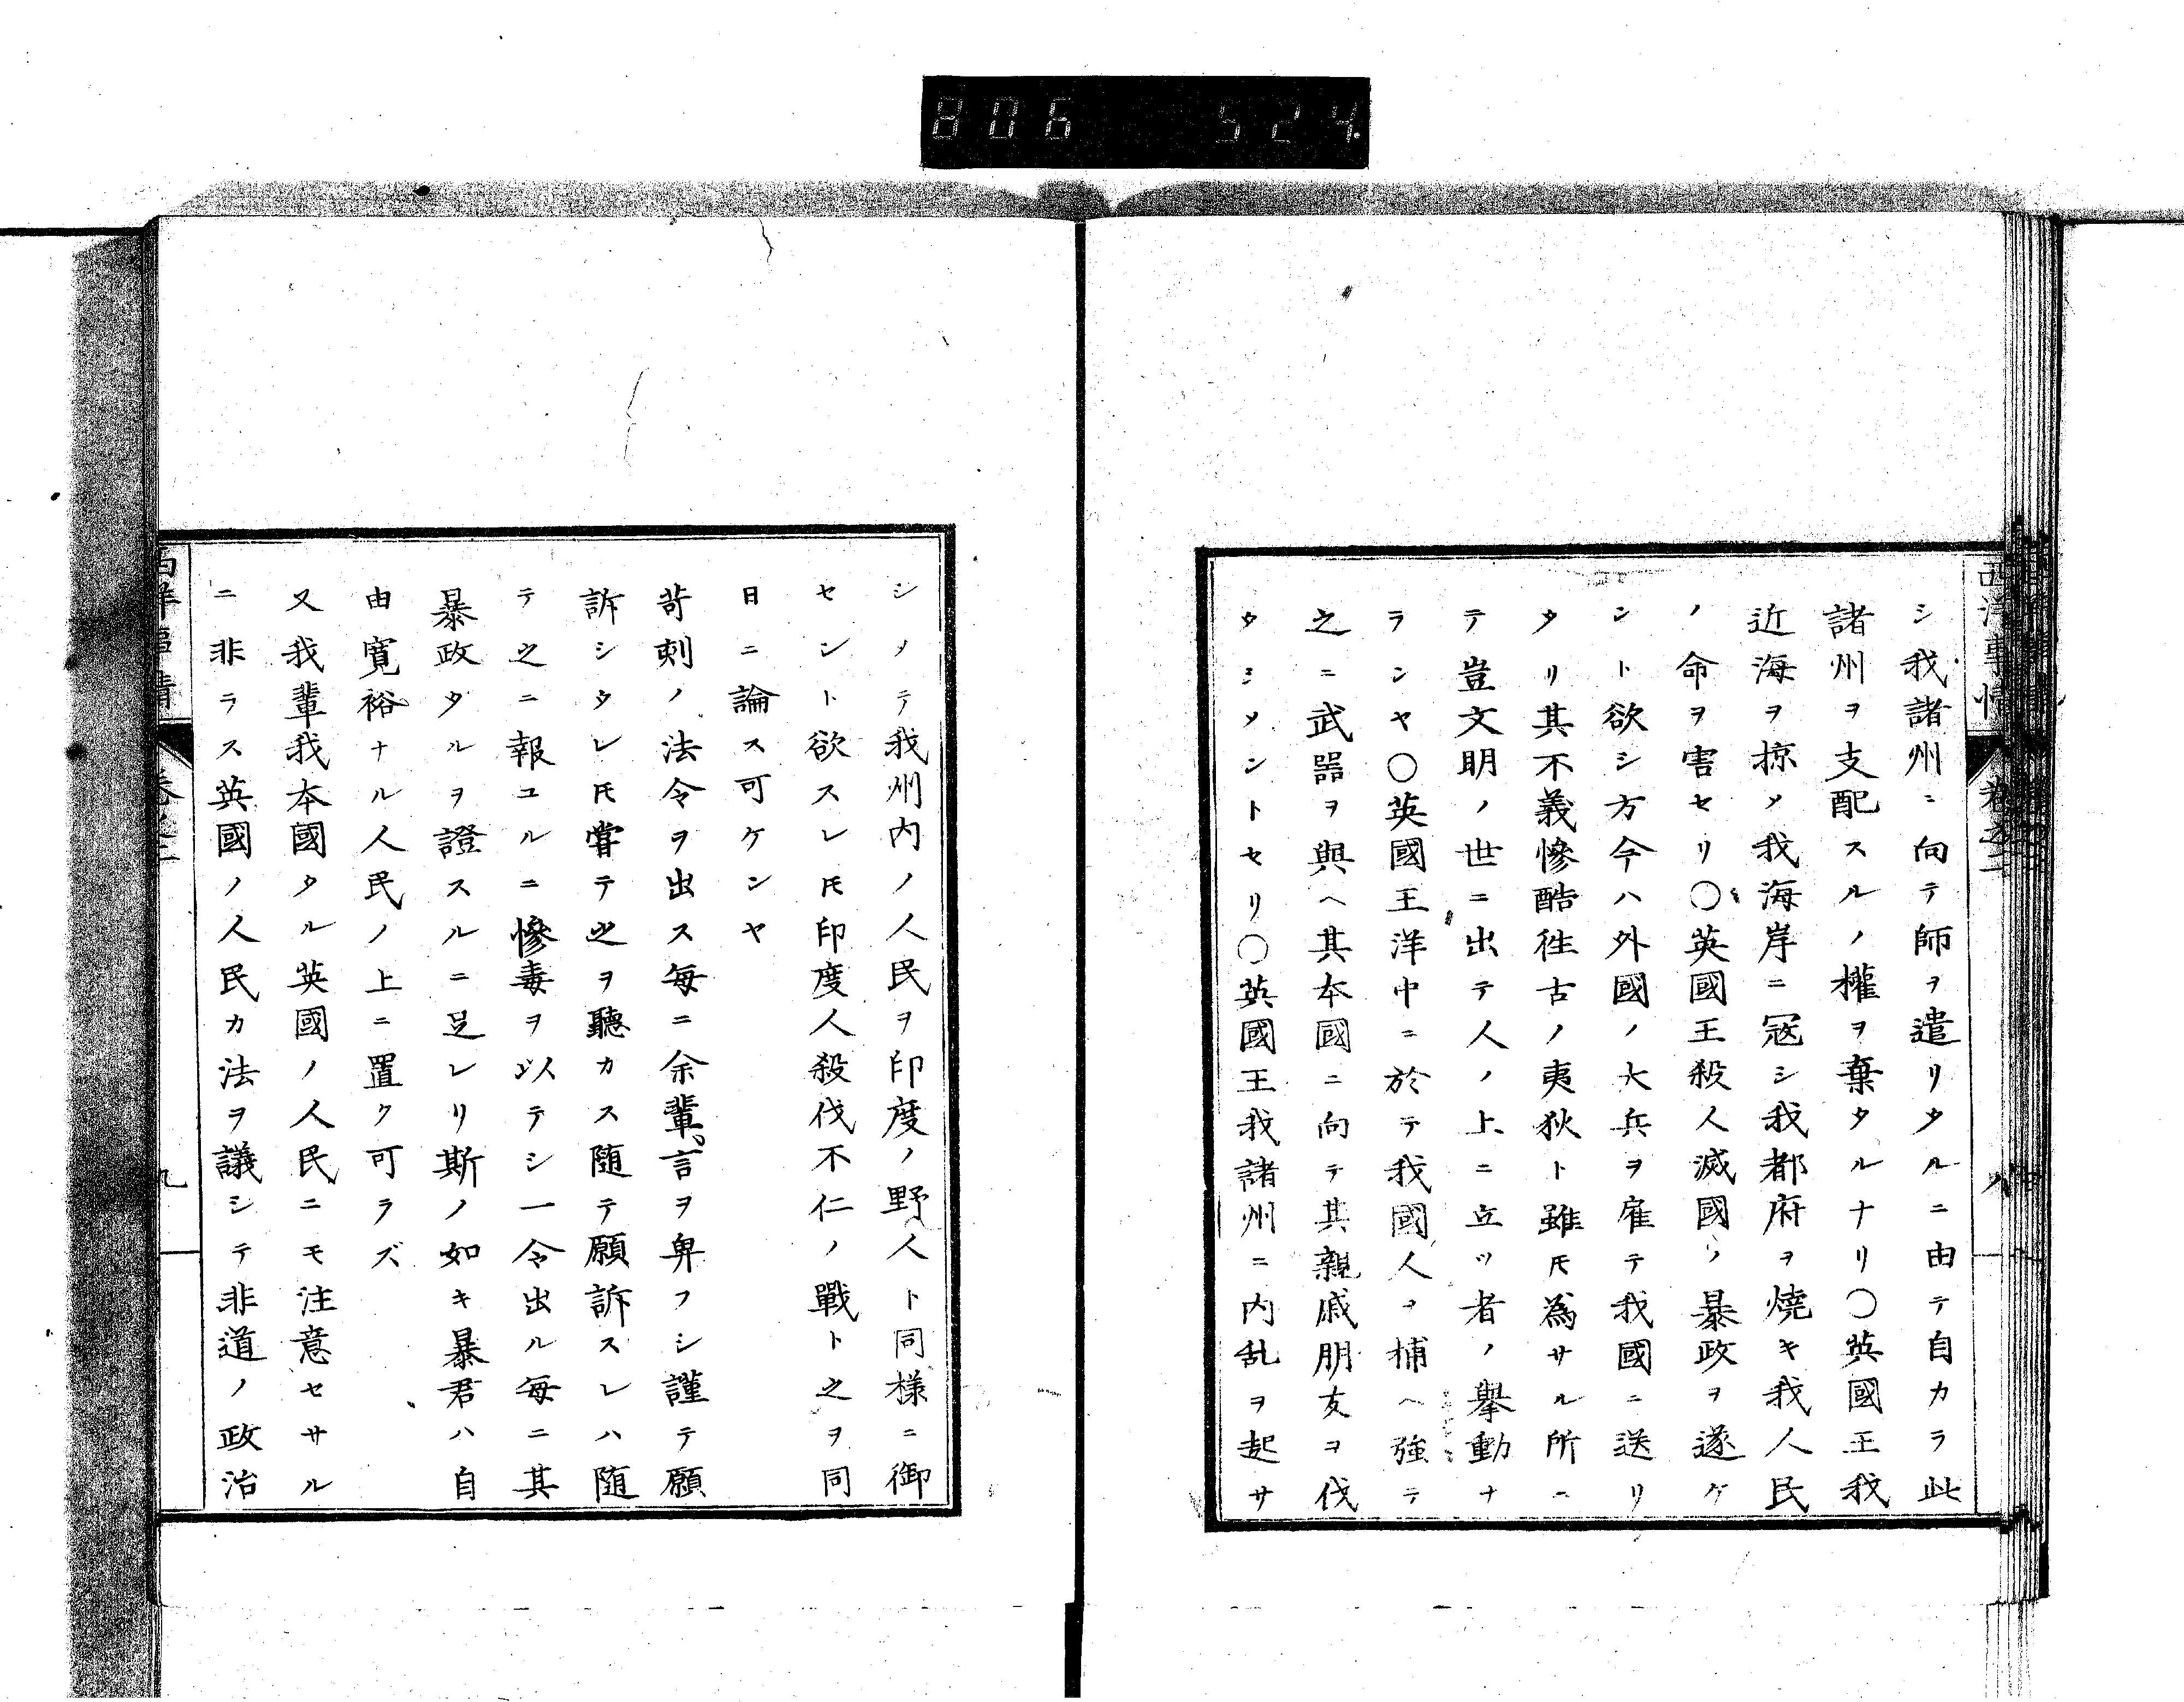 806 524.
西洋事情 卷之二 八
シ我諸州ニ向テ師ヲ遣リタルニ由テ自カラ此
諸州ヲ支配スルノ權ヲ棄タルナリ〇英國王我
近海ヲ掠メ我海岸ニ冦シ我都府ヲ燒キ我人民
ノ命ヲ害セリ〇英國王殺人滅國ノ暴政ヲ遂ケ
ント欲シ方今ハ外國ノ大兵ヲ雇テ我國ニ送リ
タリ其不義慘酷徃古ノ夷狄ト雖𪜈為サル所ニ
テ豈文明ノ世ニ出テ人ノ上ニ立ツ者ノ擧動ナ
ランヤ〇英國王洋中ニ於テ我國人ヲ捕ヘ強テ
之ニ武器ヲ與ヘ其本國ニ向テ其親戚朋友ヲ伐
タシメントセリ〇英國王我諸州ニ内乱ヲ起サ
シメテ我州内ノ人民ヲ印度ノ野人ト同様ニ御
セント欲スレ𪜈印度人殺伐不仁ノ戰ト之ヲ同
日ニ論ス可ケンヤ
苛刺ノ法令ヲ出ス毎ニ余輩言ヲ卑フシ謹テ願
訴シタレ𪜈嘗テ之ヲ聽カス随テ願訴スレハ随
テ之ニ報ユルニ慘毒ヲ以テシ一令出ル毎ニ其
暴政タルヲ證スルニ足レリ斯ノ如キ暴君ハ自
由寛裕ナル人民ノ上ニ置ク可ラズ
又我輩我本國タル英國ノ人民ニモ注意セサル
ニ非ラス英國ノ人民カ法ヲ議シテ非道ノ政治
西洋事情 卷之二 九